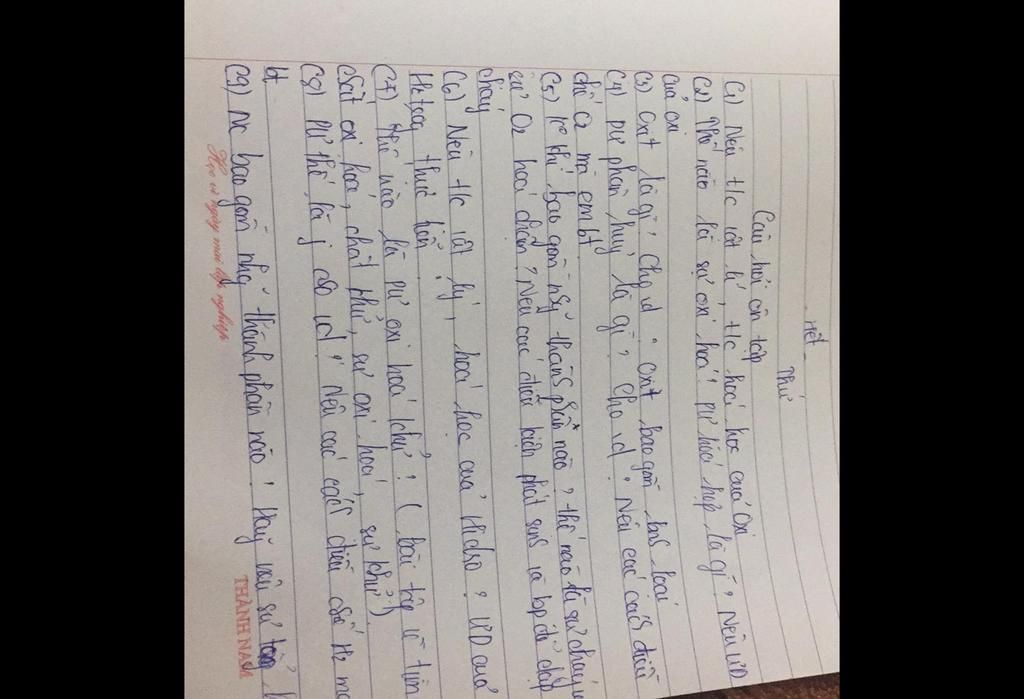 tiết
Thứ
Câu hỏi ôn tập
C1) Nêu t/c vật lí, t/c hoá học của Oxi
C2) Thế nào là sự oxi hoá? pư hoá hợp là gì? Nêu ƯD
của oxi
C3) Oxit là gì? Cho vd? Oxit bao gồm loại
C4) pư phân huỷ là gì? Cho vd? Nêu các cách điều
chế O2 mà em bt
C5) K khí bao gồm thành phần nào? thế nào là sự cháy
sự O2 hoá chậm? Nêu các điều kiện phát sinh và bp để dập
cháy
C6) Nêu t/c vật lý, hoá học của Hidro? ƯD của
H2 trong thực tiễn?
C7) Thế nào là pư oxi hoá khử? (bài tập
chất oxi hoá, chất khử, sự oxi hoá, sự khử)
C8) pư thế là j cho vd? Nêu các cách điều chế H2 mà
bt
C9) Nc bao gồm thành phần nào? Hãy nêu sự
Học vì ngày mai lập nghiệp
THÀNH NAM